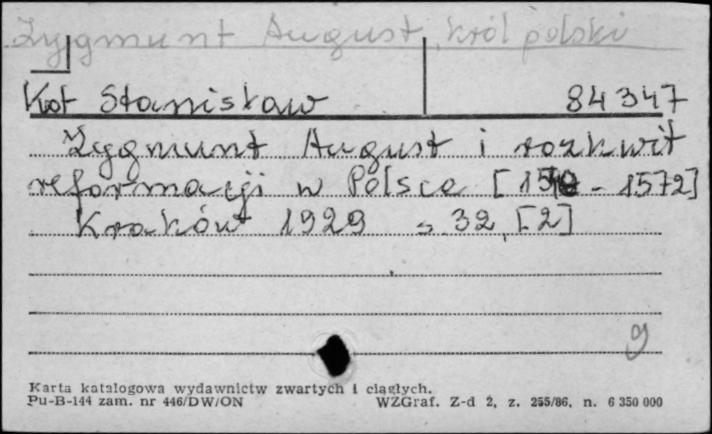 Zygmunt August, król polski
Kot Stanisław 84347
Zygmunt August i rozkwit
reformacji w Polsce [15 - 1572]
Kraków 1929 s. 32, [2]
9
Karta katalogowa wydawnictw zwartych i ciągłych.
Pu-B-144 zam. nr 446/DW/ON WZGraf. Z-d 2, z. 255/86, n. 6 350 000